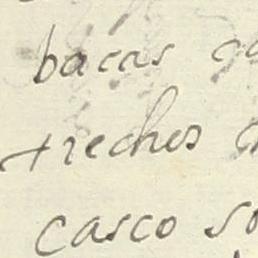 bacas
trechos
casco so